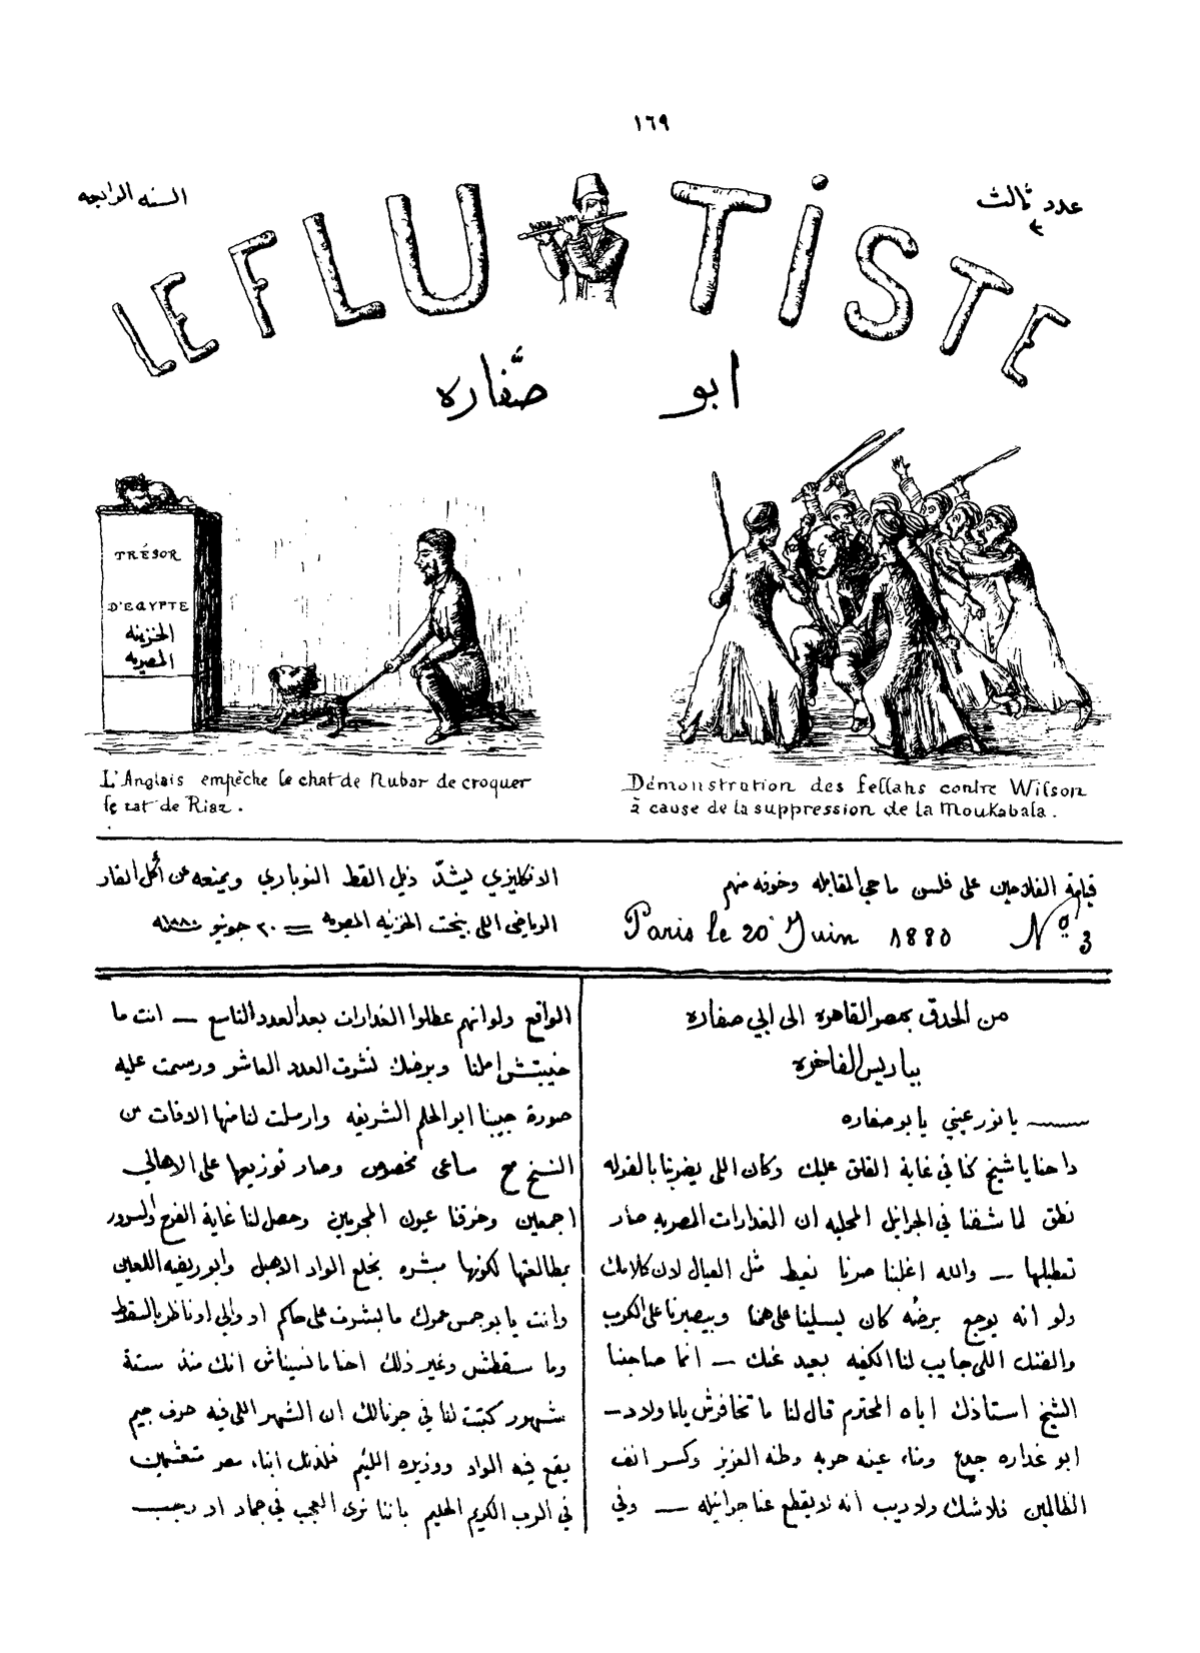 ١٦٩
عدد ثالث
٣
السنه الرابعه
LE FLUTISTE
ابو صفّاره
TRÉSOR
D'EGYPTE
الخزينه
المصريه
L'Anglais empèche le chat de Nubar de croquer
le rat de Riaz.
Démonstration des fellahs contre Wilson
à cause de la suppression de la Moukabala.
قيامة الفلاحين على فلسن ماحي المقابله وخوفه منهم
Paris le 20 Juin 1880 Nº 3
الانكليزي ليشدّ ذيل القط النوباري ويمنعه عن أكل الفار
الرياضي اللي بينحت الخزنيه المصريه = ٢٠ جونيو سنة ١٨٨٠
من الحدق بمصر القاهره الى ابي صفاره
بباريس الفاخره
يا نور عيني يا بو صفاره
داحنا يا شيخ كنا في غاية القلق عليك وكان اللي يضربنا بالفوله
نطق لما شفنا في الجرانيل المحليه ان الغدارات المصريه صار
تعطيلها — والله اغلبنا صرنا نعيط مثل العيال لان كلامك
ولو انه يوجع برضُه كان يسلينا على همنا ويصبرنا على الكروب
والضنك اللي جايب لنا الكفيه بعيد عنك — انما صاحبنا
الشيخ استاذك اياه المحترم قال لنا ما تخافوش يا اولاد —
ابو غداره جدع وماء عينه حريه وطنه العزيز وكسر انف
الظالمين فلا شك ولا ريب انه لا يقطع عنا جرانيله — وفي
الواقع ولو انهم عطلوا الغدارات بعد العدد التاسع — انت ما
خيبتش املنا وبرضك نشرت العدد العاشر ورسمت عليه
صورة حبيبنا ابو الحلم الشريفه وارسلت لنا منها الافات من
النسخ مع ساعي مخصوص وصار توزيعها على الاهالي
اجمعين وخزقنا عيون المجرمين وحصل لنا غاية الفرح والسرور
بمطالعتها لكونها مبشره بخلع الواد الاهبل وابو ريضه اللعين
وانت يا بو جمس عمرك ما بشرت على حاكم او والي او ناظر بالسقط
وما سقطش وغير ذلك احنا ما نسيناش انك منذ ستة
شهور كتبت لنا في جرنالك ان الشهر اللي فيه حرف جيم
يقع فيه الواد ووزيره اللئيم فلذلك ابناء مصر متعشمين
في الرب الكريم الحليم باننا نرى العجب في جماد او رجب